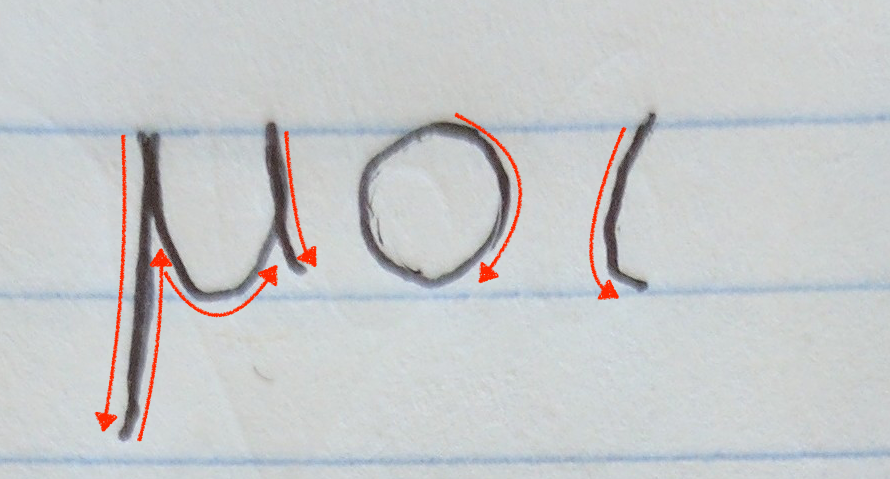 μοι